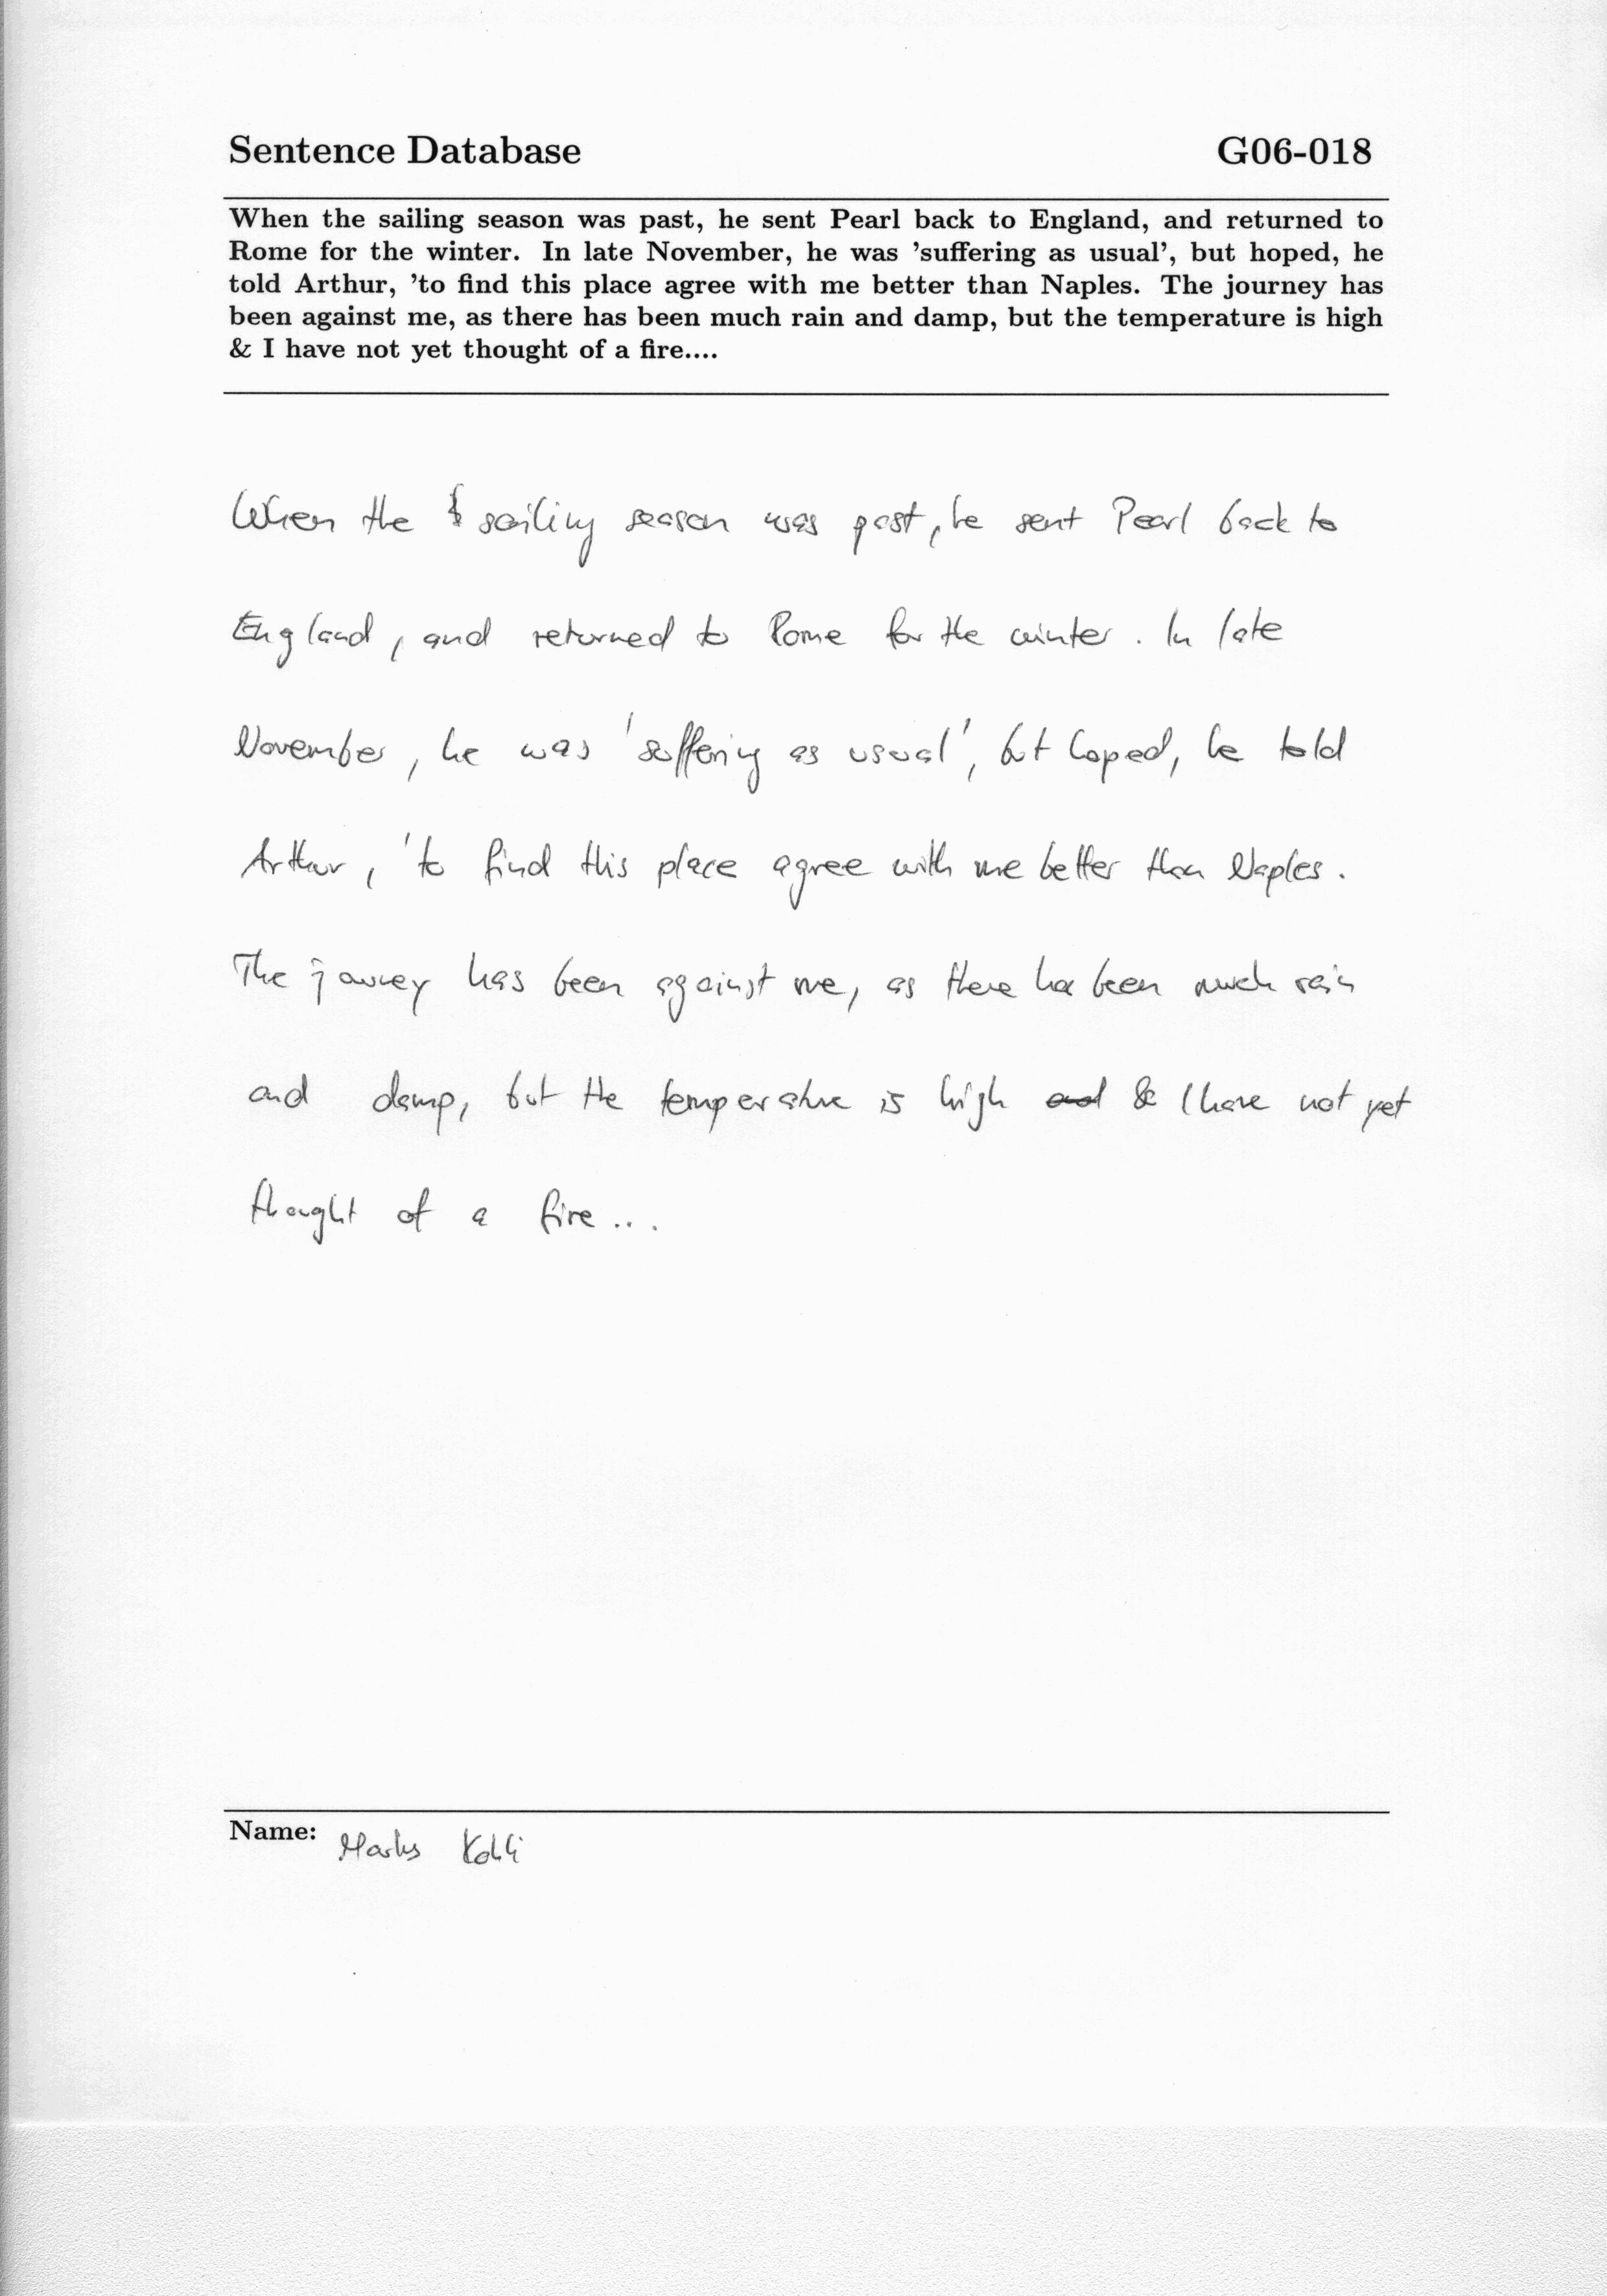 Sentence Database G06-018
When the sailing season was past, he sent Pearl back to England, and returned to
Rome for the winter. In late November, he was 'suffering as usual', but hoped, he
told Arthur, 'to find this place agree with me better than Naples. The journey has
been against me, as there has been much rain and damp, but the temperature is high
& I have not yet thought of a fire....
When the sailing season was past, he sent Pearl back to
England, and returned to Rome for the winter. In late
November, he was 'suffering as usual', but hoped, he told
Arthur, 'to find this place agree with me better than Naples.
The journey has been against me, as there has been much rain
and damp, but the temperature is high and & I have not yet
thought of a fire...
Name: